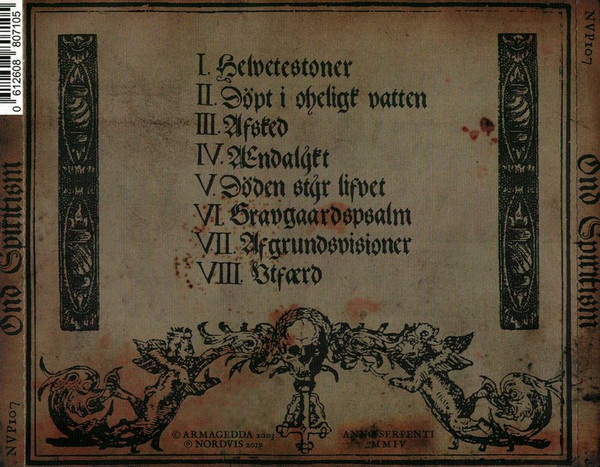 I. Helvetestoner
II. Döpt i oheligt vatten
III. Afsked
IV. Ændalykt
V. Döden styr lifvet
VI. Gravgaardspsalm
VII. Afgrundsvisioner
VIII. Utfærd
© ARMAGEDDA 2003
℗ NORDVIS 2019
ANNO SERPENTI
MMIV
Ond Spiritism
NVP107
Ond Spiritism
NVP107
0 612608 807105